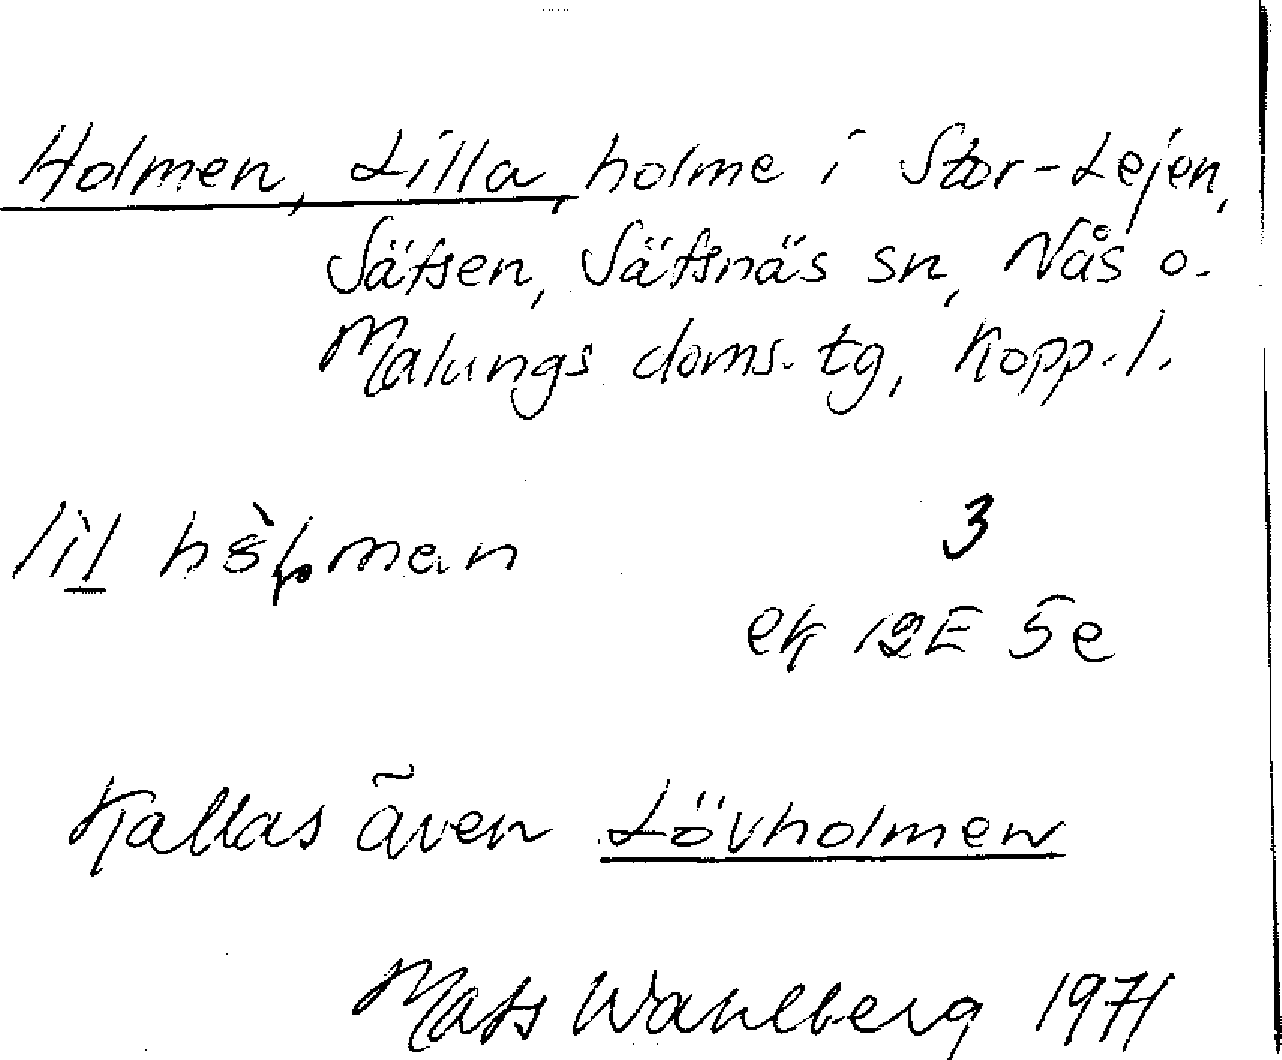 Holmen, Lilla, holme i Stor-Lejen,
Säfsen, Säfsnäs sn, Nås o.
Malungs doms. tg, Kopp. l.
lìl
3
ek 12E 5e
Kallas även Lövholmen
Mats Wahlberg 1971